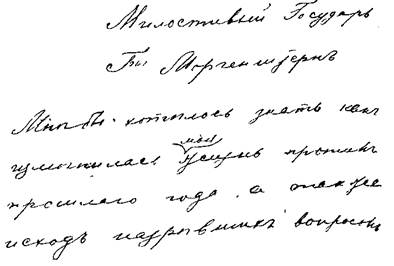 Милостивый Государь
Моргенштернъ
Мнѣ бы хотѣлось знать какъ
измѣнилась моя жизнь противъ
прошлаго года, а также
исходъ назрѣвшихъ вопросовъ